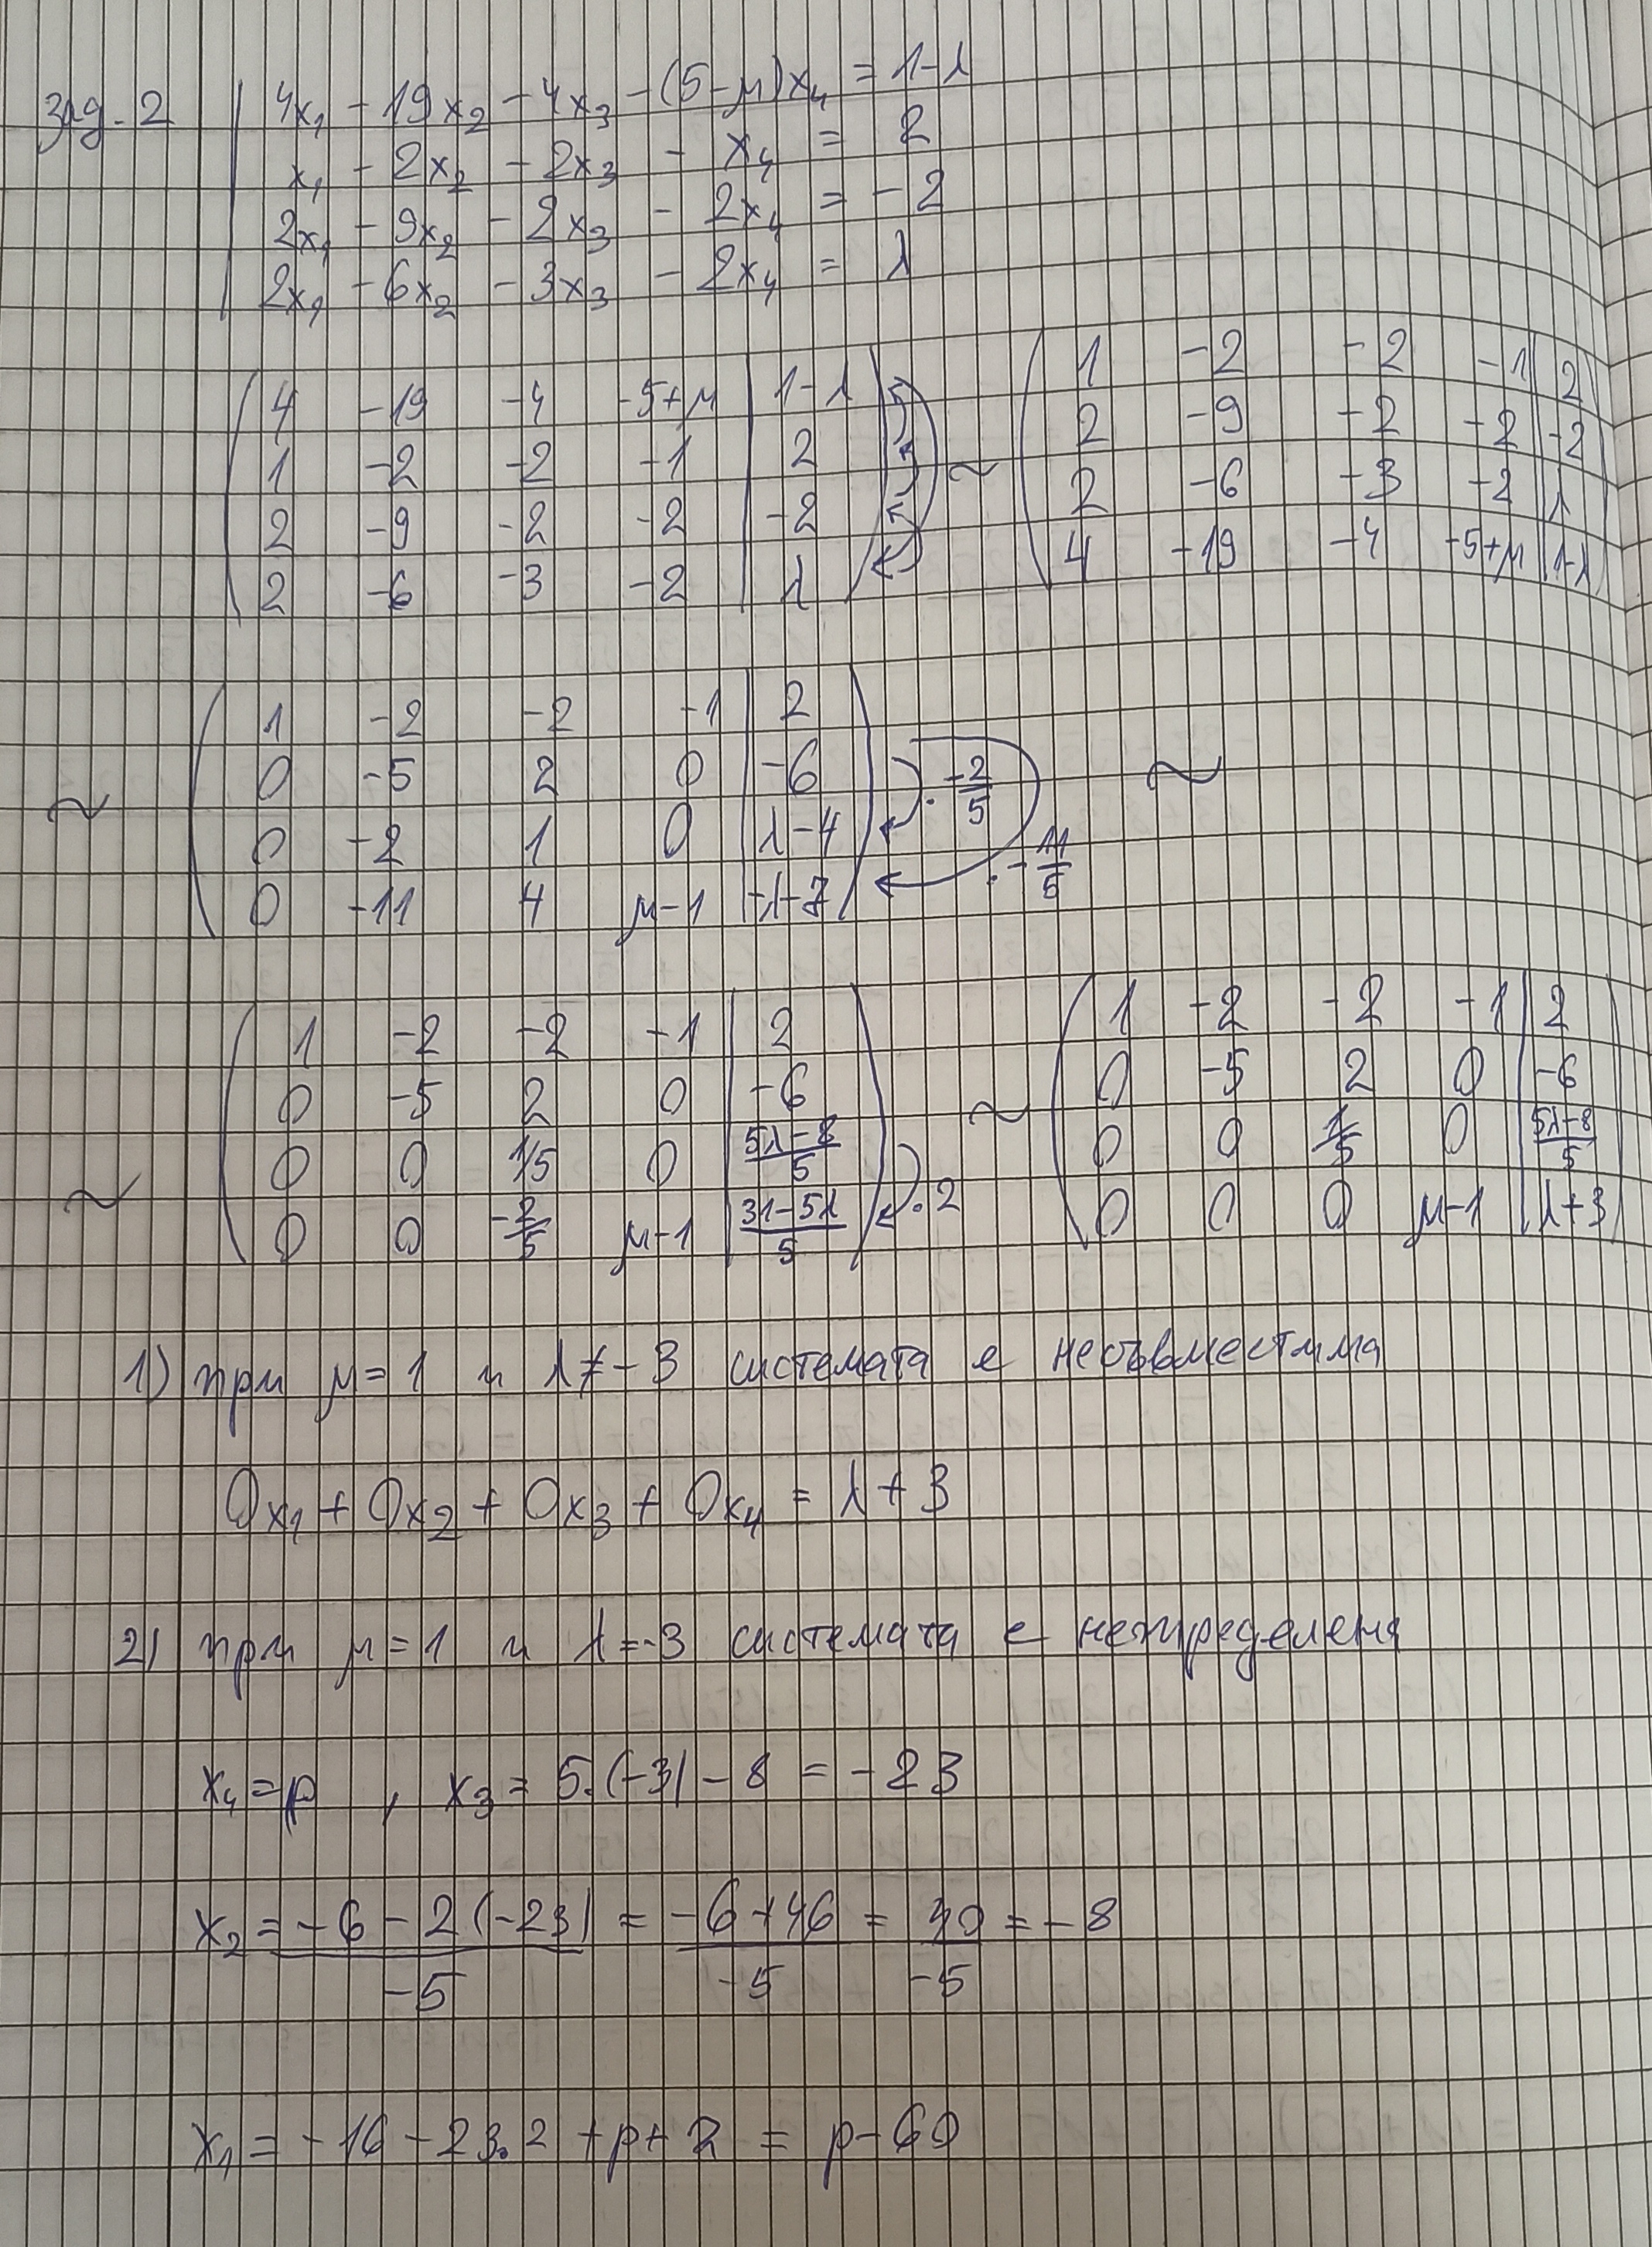 зад. 2 | 4x₁ - 19x₂ - 4x₃ - (5-μ)x₄ = 1-λ
x₁ - 2x₂ - 2x₃ - x₄ = 2
2x₁ - 9x₂ - 2x₃ - 2x₄ = -2
2x₁ - 6x₂ - 3x₃ - 2x₄ = λ
( 4 -19 -4 -5+μ | 1-λ ) ~ ( 1 -2 -2 -1 | 2 )
( 1 -2 -2 -1 | 2 ) ( 2 -9 -2 -2 | -2 )
( 2 -9 -2 -2 | -2 ) ( 2 -6 -3 -2 | λ )
( 2 -6 -3 -2 | λ ) ( 4 -19 -4 -5+μ | 1-λ )
~ ( 1 -2 -2 -1 | 2 )
( 0 -5 2 0 | -6 ) · -2/5 ~
( 0 -2 1 0 | λ-4 ) · -11/5
( 0 -11 4 μ-1 | -λ-7 )
~ ( 1 -2 -2 -1 | 2 ) ~ ( 1 -2 -2 -1 | 2 )
( 0 -5 2 0 | -6 ) ( 0 -5 2 0 | -6 )
( 0 0 1/5 0 | (5λ-8)/5 ) ( 0 0 1/5 0 | (5λ-8)/5 )
( 0 0 -2/5 μ-1 | (31-5λ)/5 ) · 2 ( 0 0 0 μ-1 | λ+3 )
1) при μ=1 и λ≠-3 системата е несъвместима
0x₁ + 0x₂ + 0x₃ + 0x₄ = λ+3
2) при μ=1 и λ=-3 системата е неопределена
x₄ = p , x₃ = 5.(-3) - 8 = -23
x₂ = (-6 - 2(-23))/-5 = (-6+46)/-5 = 40/-5 = -8
x₁ = -16 - 23.2 + p + 2 = p - 60